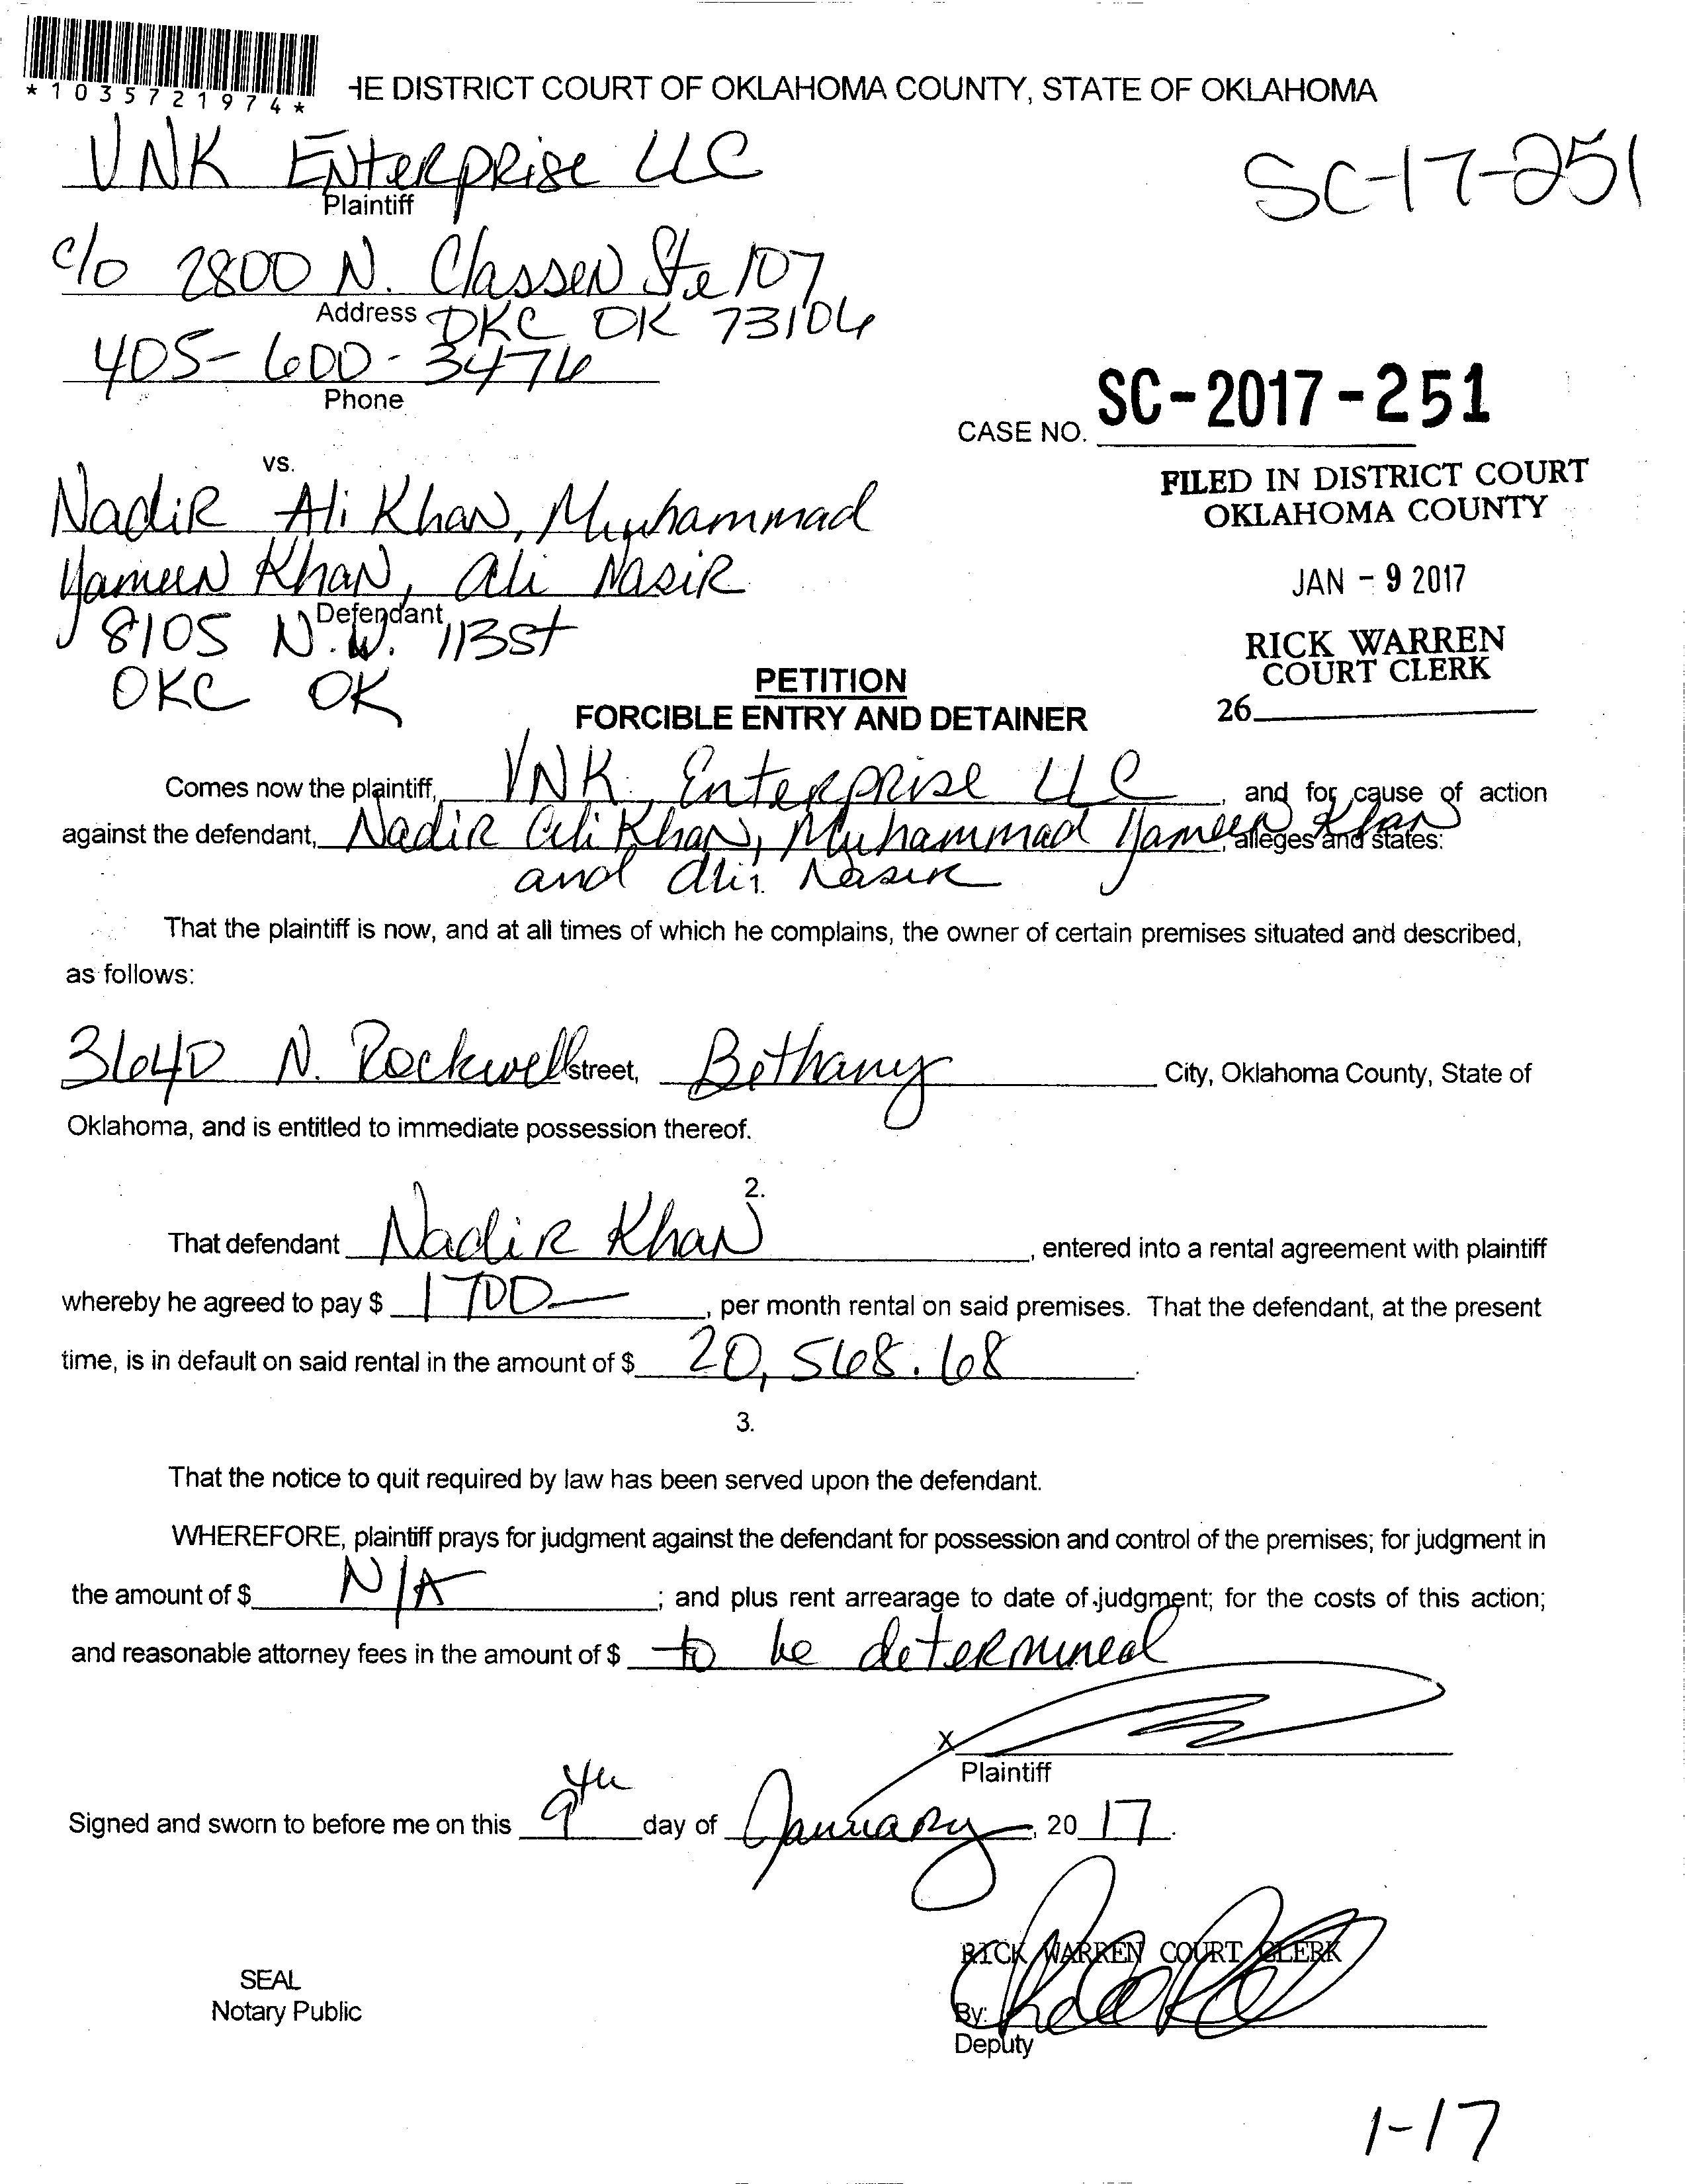 *1035721974*
HE DISTRICT COURT OF OKLAHOMA COUNTY, STATE OF OKLAHOMA
VNK Enterprise LLC
SC-17-251
Plaintiff
c/o 2800 N. Classen Ste 107
Address OKC OK 73106
405-600-3476
Phone
CASE NO. SC-2017-251
vs.
FILED IN DISTRICT COURT
OKLAHOMA COUNTY
Nadir Ali Khan, Muhammad
Yameen Khan, Ali Nasir
JAN - 9 2017
Defendant
8105 N.W. 113 St
RICK WARREN
COURT CLERK
OKC OK
PETITION
26
FORCIBLE ENTRY AND DETAINER
Comes now the plaintiff, VNK Enterprise LLC, and for cause of action
against the defendant, Nadir Ali Khan, Muhammad Yameen Khan, alleges and states:
and Ali Nasir
That the plaintiff is now, and at all times of which he complains, the owner of certain premises situated and described,
as follows:
3640 N. Rockwell street, Bethany City, Oklahoma County, State of
Oklahoma, and is entitled to immediate possession thereof.
2.
That defendant Nadir Khan, entered into a rental agreement with plaintiff
whereby he agreed to pay $ 1700—, per month rental on said premises. That the defendant, at the present
time, is in default on said rental in the amount of $ 20,568.68.
3.
That the notice to quit required by law has been served upon the defendant.
WHEREFORE, plaintiff prays for judgment against the defendant for possession and control of the premises; for judgment in
the amount of $ N/A; and plus rent arrearage to date of judgment; for the costs of this action;
and reasonable attorney fees in the amount of $ to be determined
X
Plaintiff
Signed and sworn to before me on this 9th day of January, 2017.
RICK WARREN COURT CLERK
SEAL
Notary Public
By:
Deputy
1-17